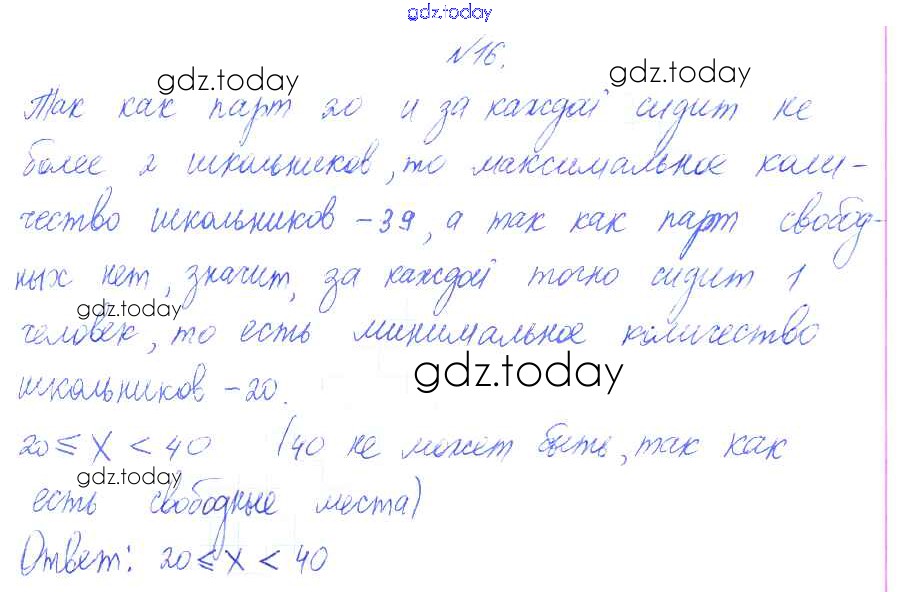 gdz.today
№16.
gdz.today gdz.today
Так как парт 20 и за каждой сидит не
более 2 школьников, то максимальное коли-
чество школьников - 39, а так как парт свобод-
ных нет, значит, за каждой точно сидит 1
gdz.today
человек, то есть минимальное количество
gdz.today
школьников - 20.
20 ≤ x < 40 (40 не может быть, так как
gdz.today
есть свободные места)
Ответ: 20 ≤ x < 40